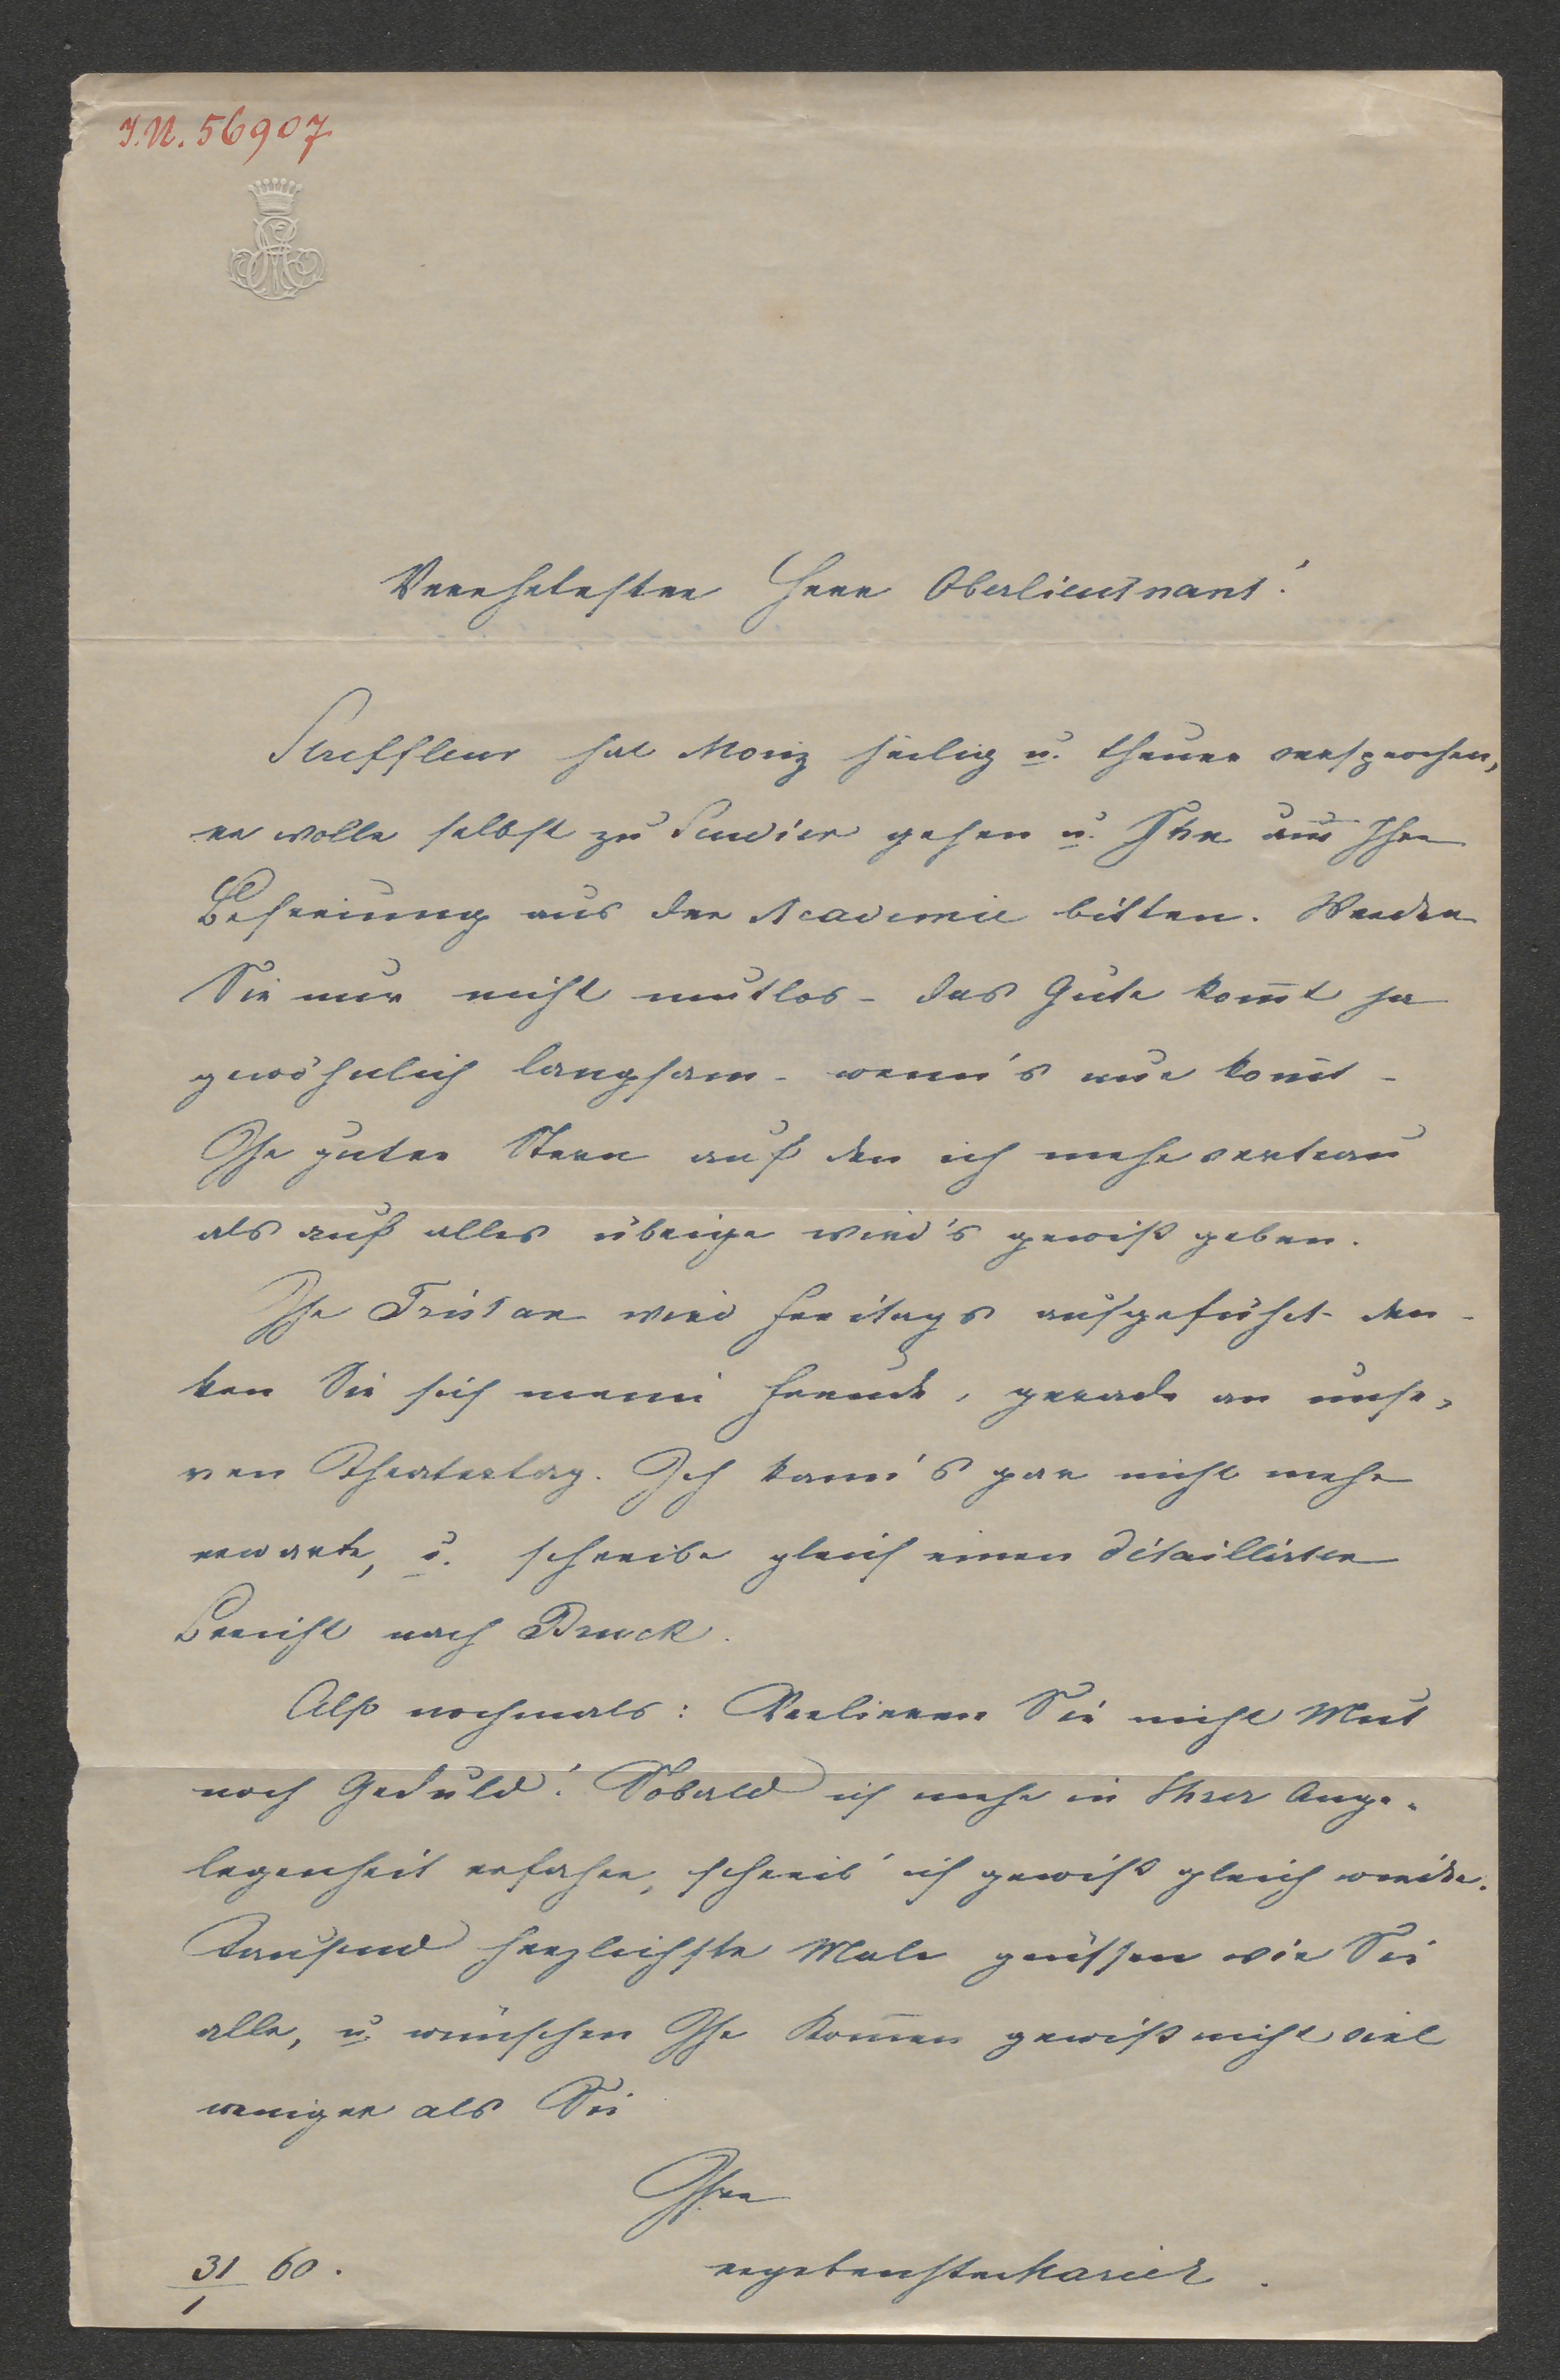 I.N. 56907
Verehrtester Herr Oberlieutnant!
Streffleur hat Moriz heilig u. theuer versprochen,
er wolle selbst zu gehen u. Ihn um Ihre
Befreiung aus der Academie bitten. Werden
Sie nur nicht mutlos - das Gute kom̅t ja
gewöhnlich langsam - wenn's nur kom̅t -
Ihr guter Stern auf den ich mehr vertrau
als auf alles übrige wird's gewiß geben.
Ihr Tristan wird Freitags aufgeführt - den-
ken Sie sich meine Freude, gerade an unse-
ren Theatertag. Ich kann's gar nicht mehr
erwarten, u. schreibe gleich einen détaillirten
Bericht nach Bruck.
Also nochmals: Verlieren Sie nicht Mut
noch Geduld! Sobald ich mehr in Ihrer Ange-
legenheit erfahre, schreib' ich gewiß gleich wieder.
Tausend herzlichste Male grüssen wir Sie
alle, u. wünschen Ihr Kom̅en gewiß nicht viel
weniger als Sie
Ihre
31/1 60. ergebenste Marie